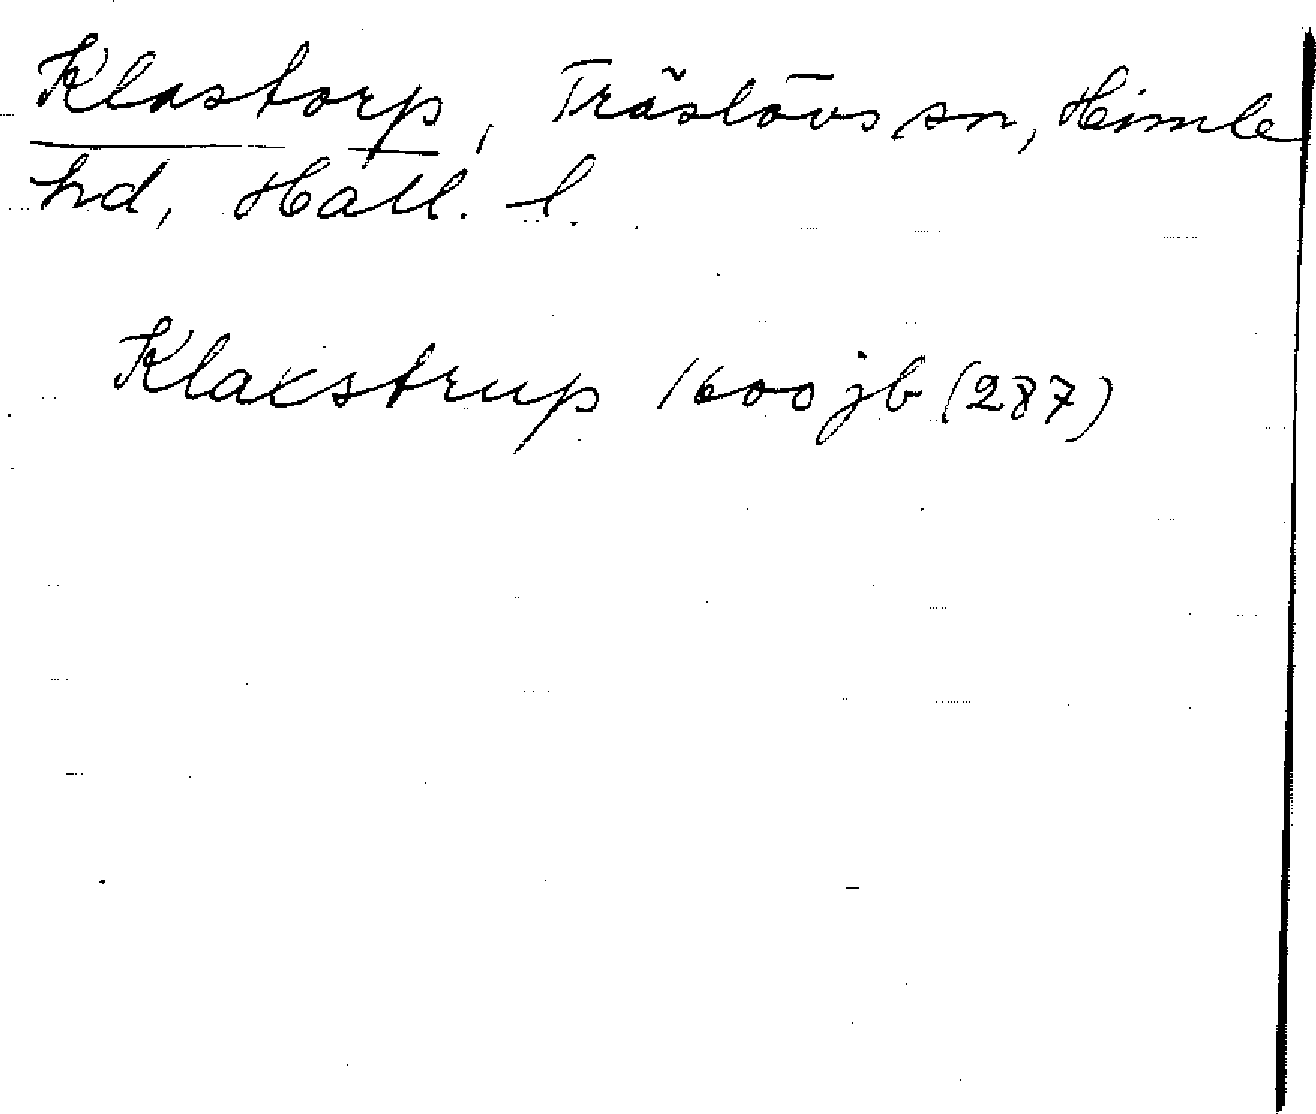 Klastorp, Träslövs sn, Himle
hd, Hall. l.
Klakstrup 1600 jb (287)